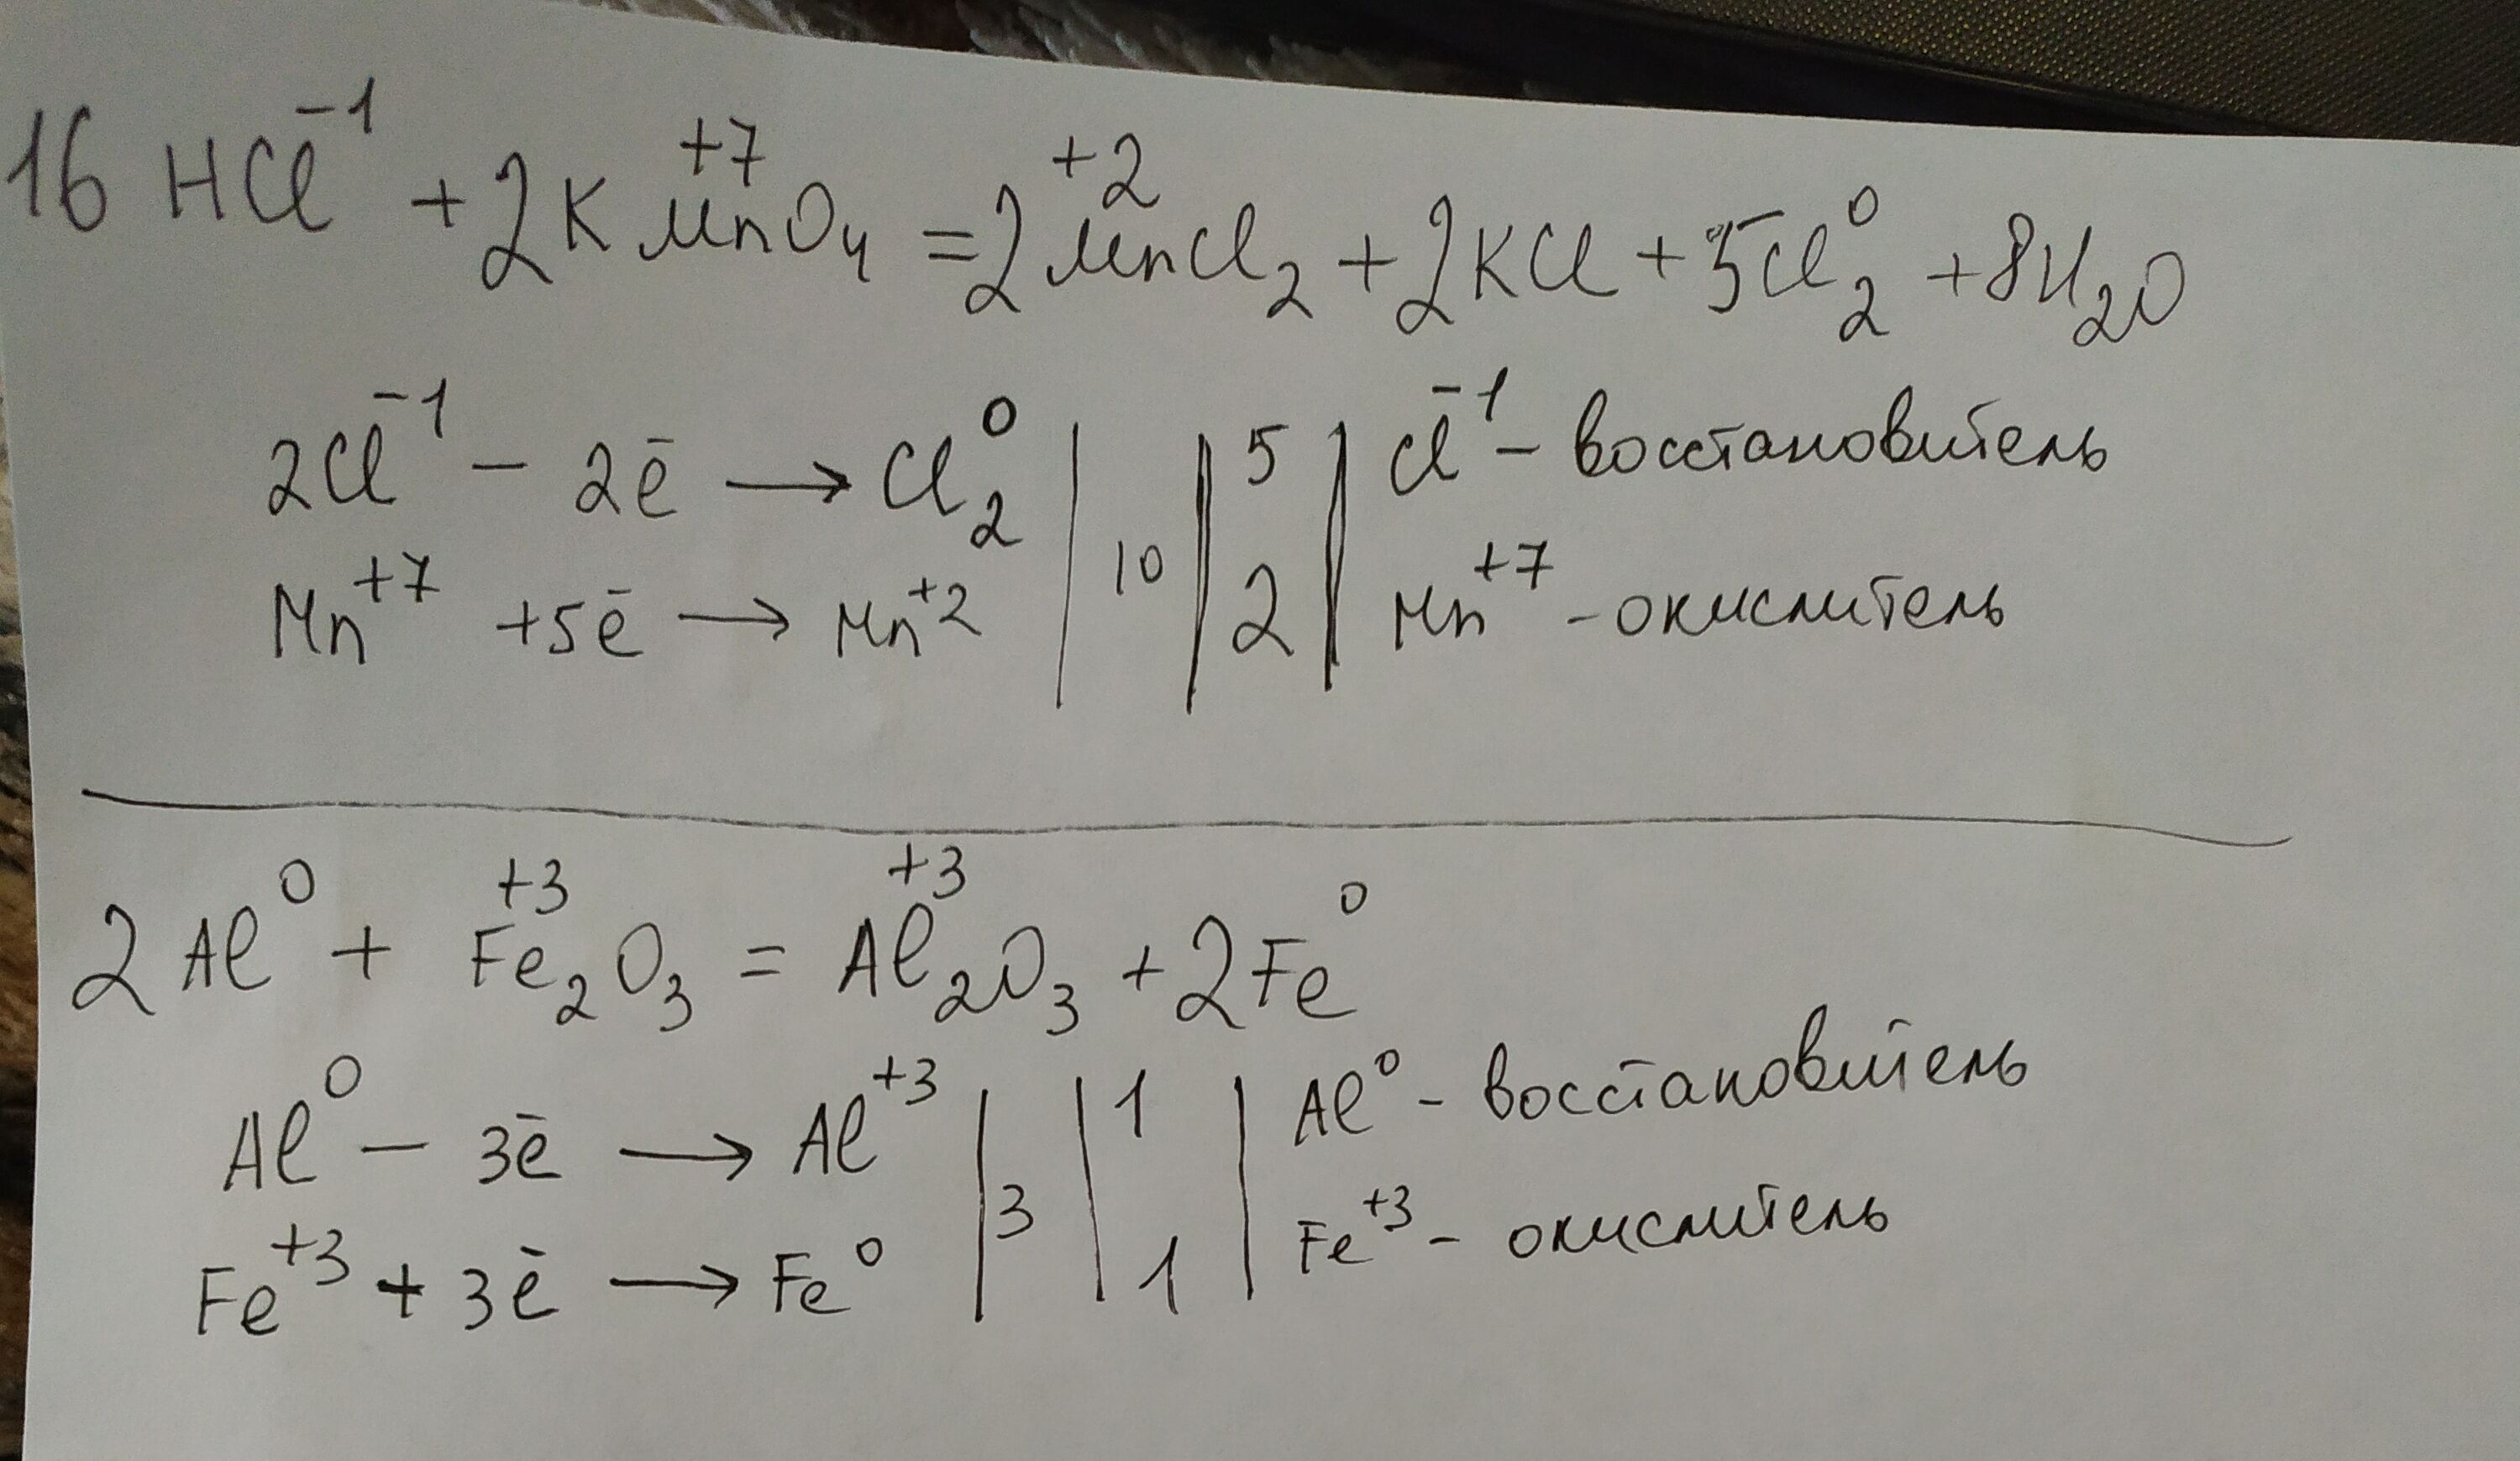 16 HCl⁻¹ + 2KMn⁺⁷O₄ = 2Mn⁺²Cl₂ + 2KCl + 5Cl₂⁰ + 8H₂O
2Cl⁻¹ – 2ē → Cl₂⁰ | | 5 | Cl⁻¹ – восстановитель
10
Mn⁺⁷ +5ē → Mn⁺² | | 2 | Mn⁺⁷ – окислитель
2Al⁰ + Fe₂⁺³O₃ = Al₂⁺³O₃ + 2Fe⁰
Al⁰ – 3ē → Al⁺³ | | 1 | Al⁰ – восстановитель
3
Fe⁺³ + 3ē → Fe⁰ | | 1 | Fe⁺³ – окислитель